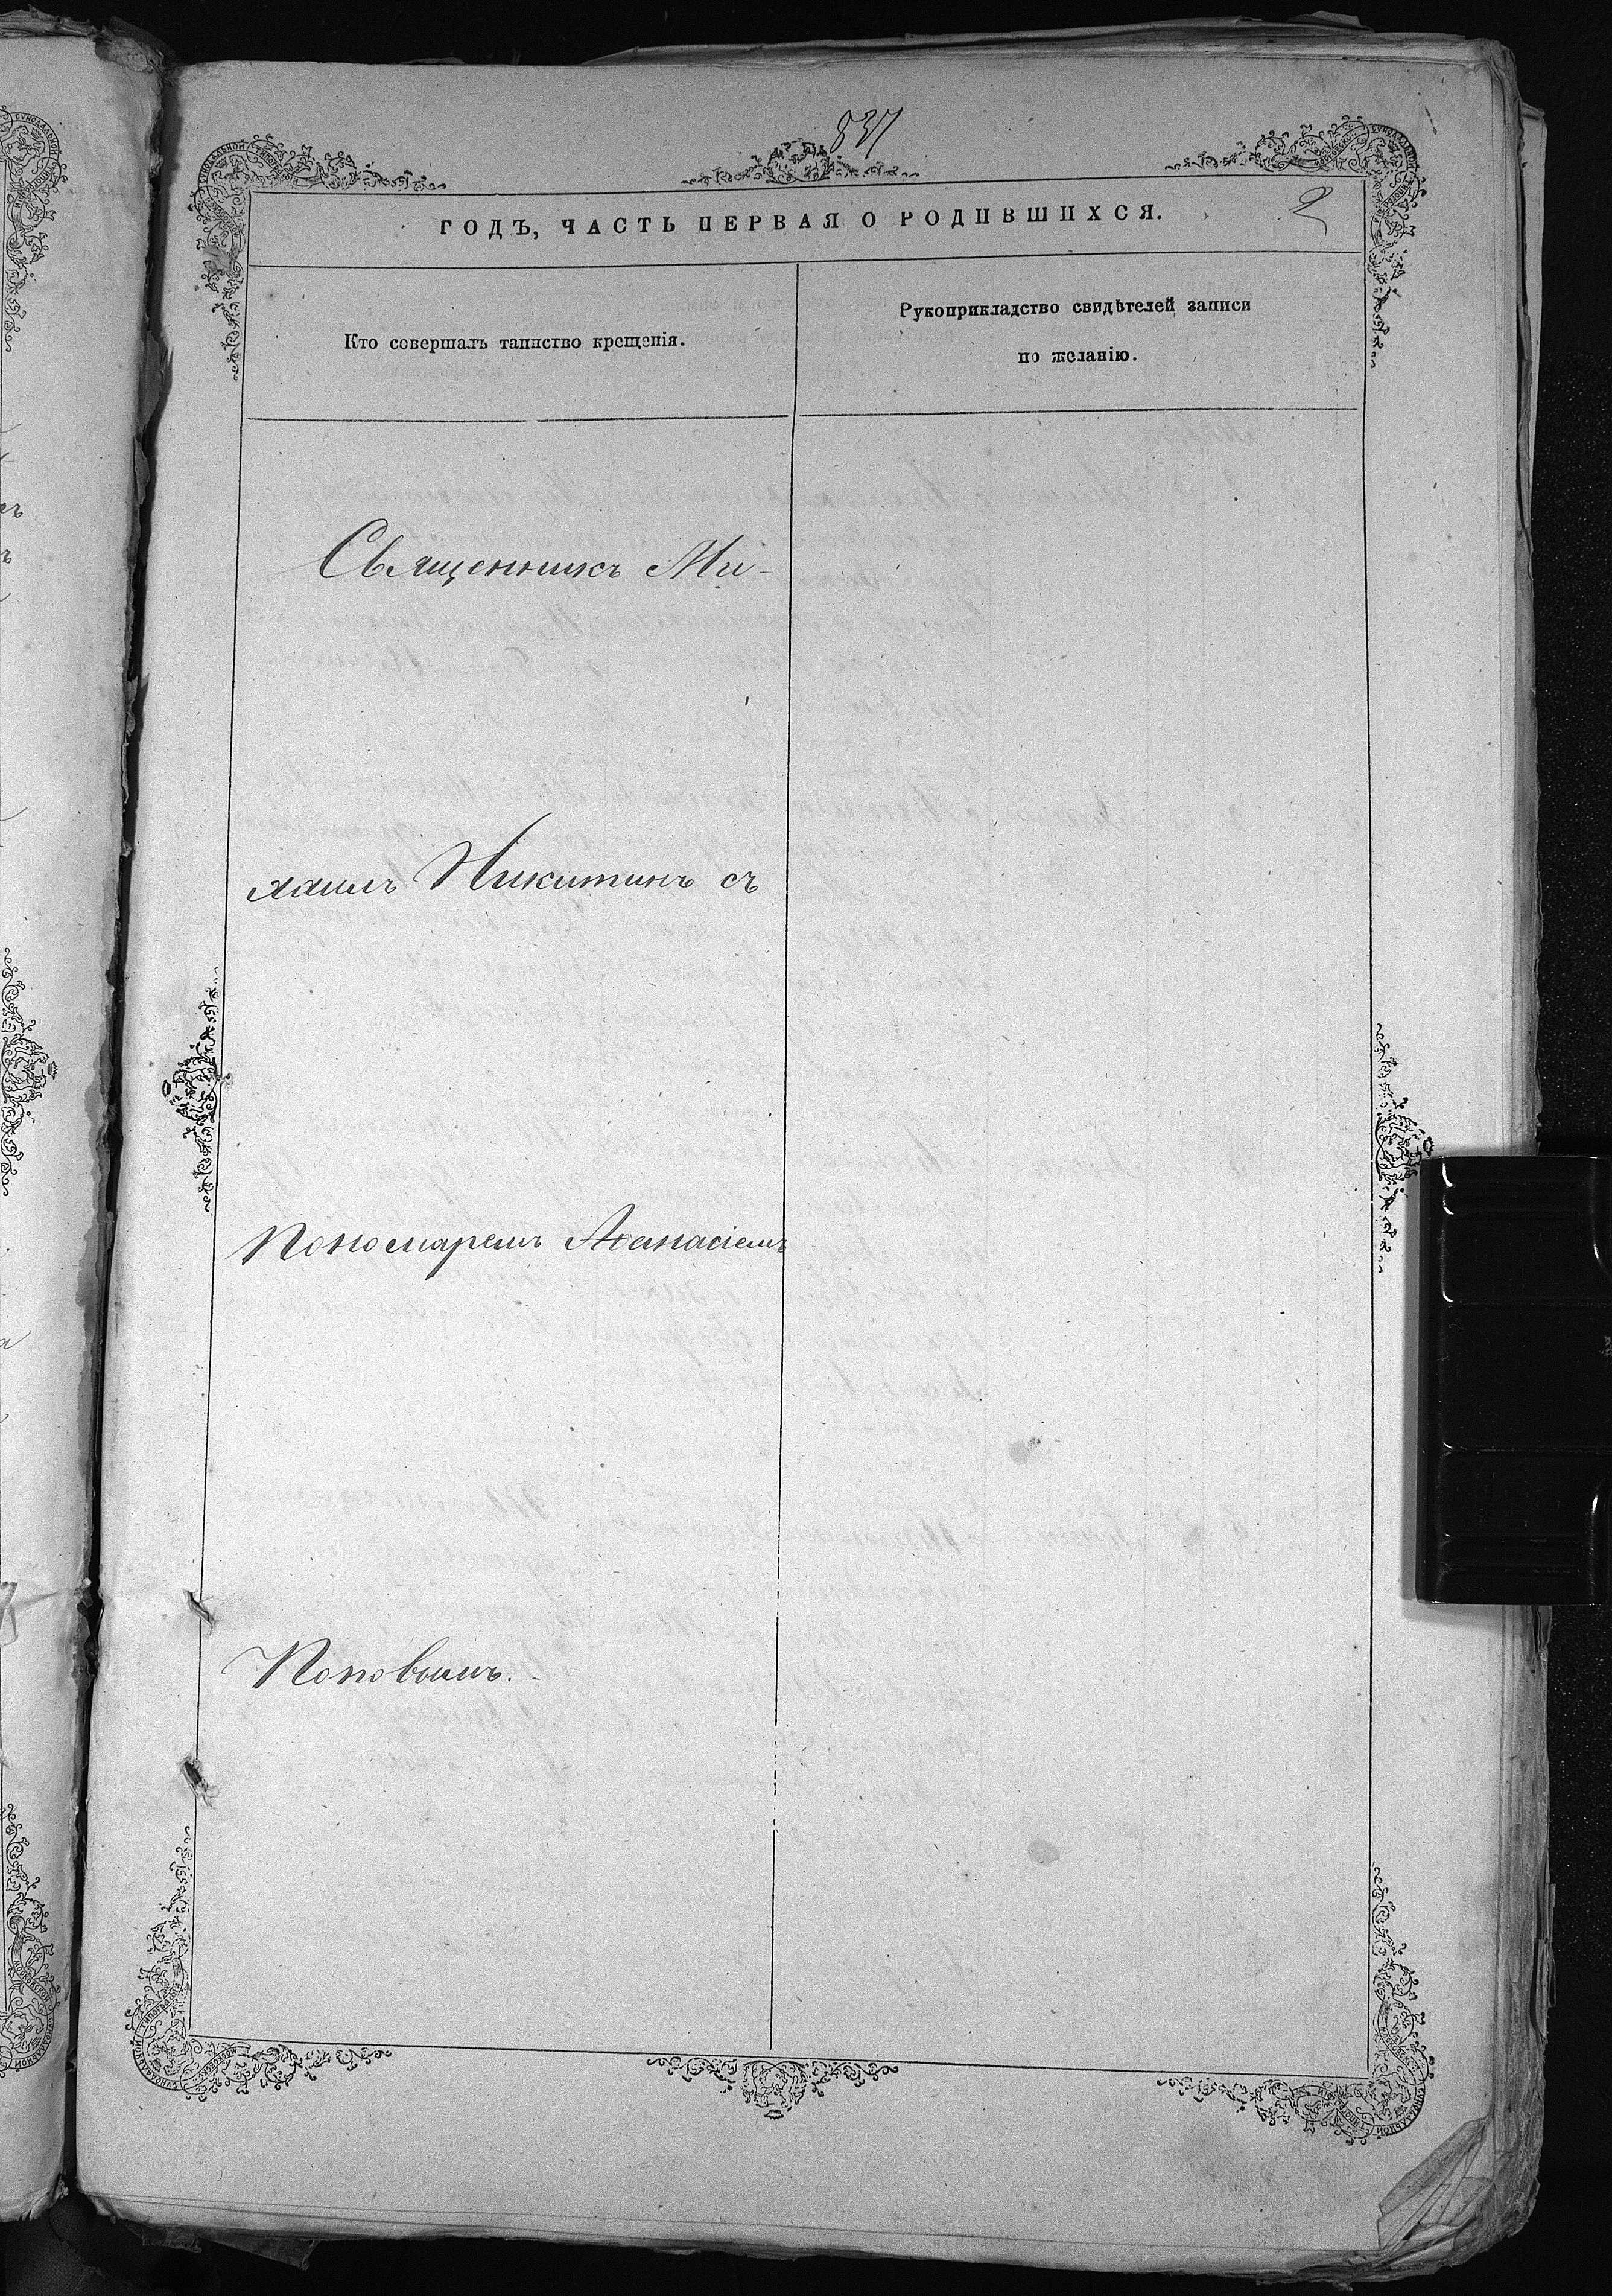 837
2
ГОДЪ, ЧАСТЬ ПЕРВАЯ О РОДИВШИХСЯ.
Кто совершалъ таинство крещенія.
Рукоприкладство свидѣтелей записи
по желанію.
Священникъ Ми-
хаилъ Никитинъ съ
Пономаремъ Аѳанасіемъ
Поповымъ.